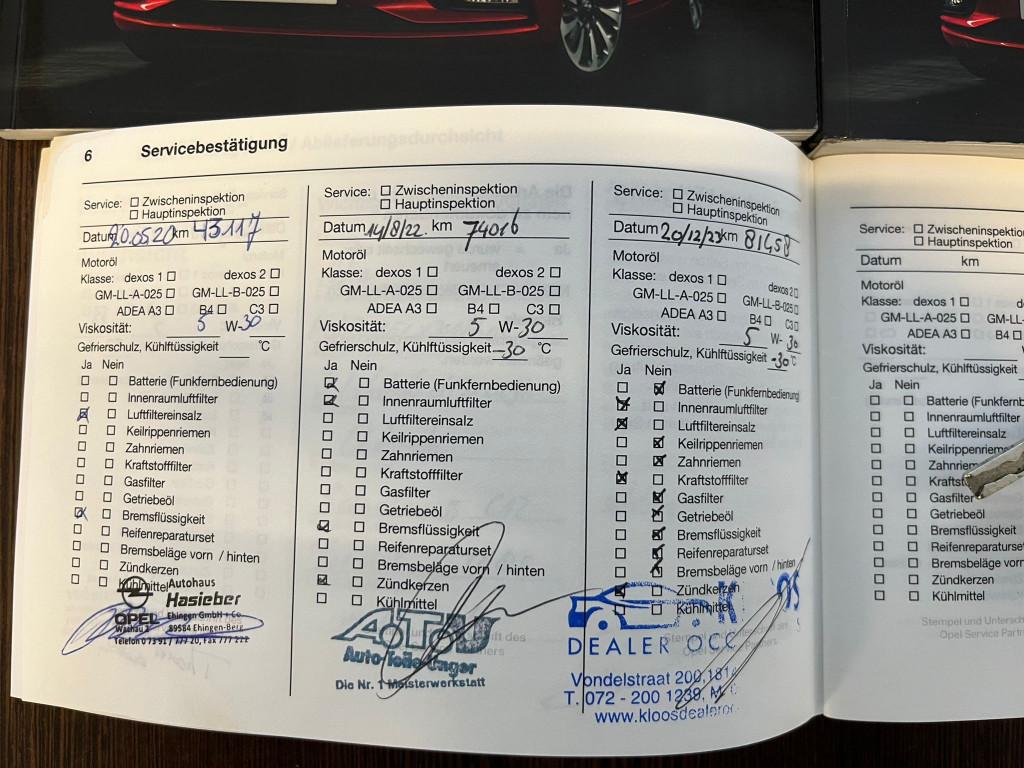 6 Servicebestätigung
Service: Zwischeninspektion
Hauptinspektion
Datum 20.05.20 km 43117
Motoröl
Klasse: dexos 1 dexos 2
GM-LL-A-025 GM-LL-B-025
ADEA A3 B4 C3
Viskosität: 5 W-30
Gefrierschulz, Kühlftüssigkeit °C
Ja Nein
Batterie (Funkfernbedienung)
Innenraumluftfilter
Luftfiltereinsalz
Keilrippenriemen
Zahnriemen
Kraftstofffilter
Gasfilter
Getriebeöl
Bremsflüssigkeit
Reifenreparaturset
Bremsbeläge vorn / hinten
Zündkerzen
Kühlmittel
OPEL
Autohaus
Hasieber
Ehingen GmbH + Co
89584 Ehingen-Berg
Service: Zwischeninspektion
Hauptinspektion
Datum 14/8/22. km 74016
Motoröl
Klasse: dexos 1 dexos 2
GM-LL-A-025 GM-LL-B-025
ADEA A3 B4 C3
Viskosität: 5 W-30
Gefrierschulz, Kühlftüssigkeit -30 °C
Ja Nein
Batterie (Funkfernbedienung)
Innenraumluftfilter
Luftfiltereinsalz
Keilrippenriemen
Zahnriemen
Kraftstofffilter
Gasfilter
Getriebeöl
Bremsflüssigkeit
Reifenreparaturset
Bremsbeläge vorn / hinten
Zündkerzen
Kühlmittel
A.T.U
Auto-Teile-Unger
Die Nr. 1 Meisterwerkstatt
Service: Zwischeninspektion
Hauptinspektion
Datum 20/12/23 km 81458
Motoröl
Klasse: dexos 1 dexos 2
GM-LL-A-025 GM-LL-B-025
ADEA A3 B4 C3
Viskosität: 5 W-30
Gefrierschulz, Kühlftüssigkeit -30 °C
Ja Nein
Batterie (Funkfernbedienung)
Innenraumluftfilter
Luftfiltereinsalz
Keilrippenriemen
Zahnriemen
Kraftstofffilter
Gasfilter
Getriebeöl
Bremsflüssigkeit
Reifenreparaturset
Bremsbeläge vorn / hinten
Zündkerzen
Kühlmittel
DEALER OCC
Vondelstraat 200, 181
T. 072 - 200 1239, M.
www.kloosdealeroc
Service: Zwischeninspektion
Hauptinspektion
Datum km
Motoröl
Klasse: dexos 1
GM-LL-A-025 GM-LL
ADEA A3 B4
Viskosität: W
Gefrierschulz, Kühlftüssigkeit
Ja Nein
Batterie (Funkfernb
Innenraumluftfilter
Luftfiltereinsalz
Keilrippenriemen
Zahnrieme
Kraftst
Gasfilter
Getriebeöl
Bremsflüssigkeit
Reifenreparaturset
Bremsbeläge vorn
Zündkerzen
Kühlmittel
Stempel und Unterschr
Opel Service Partn